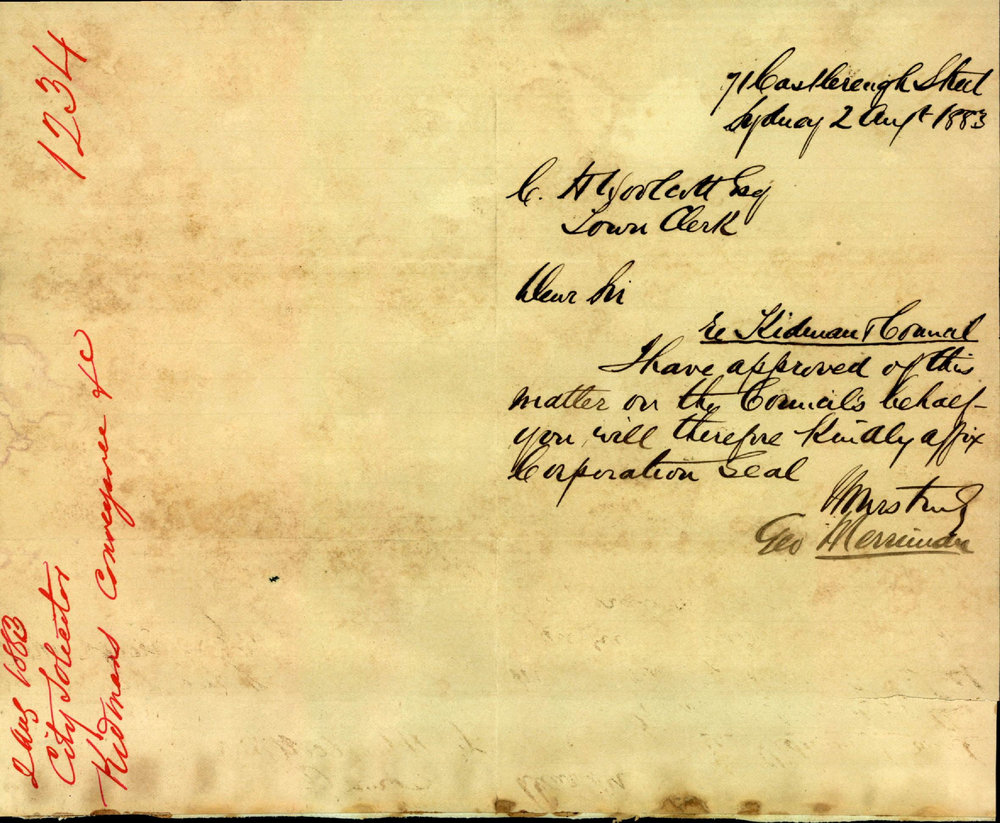 1234
2 Aug 1883
City Solicitor
Kidmans Conveyance &c
71 Castlereagh Street
Sydney 2 Augt 1883
C. H Woolcott Esq
Town Clerk
Dear Sir
Re Kidman & Council
I have approved of this
matter on the Council's behalf
you will therefore Kindly affix
Corporation Seal
Yours truly
Geo Merriman